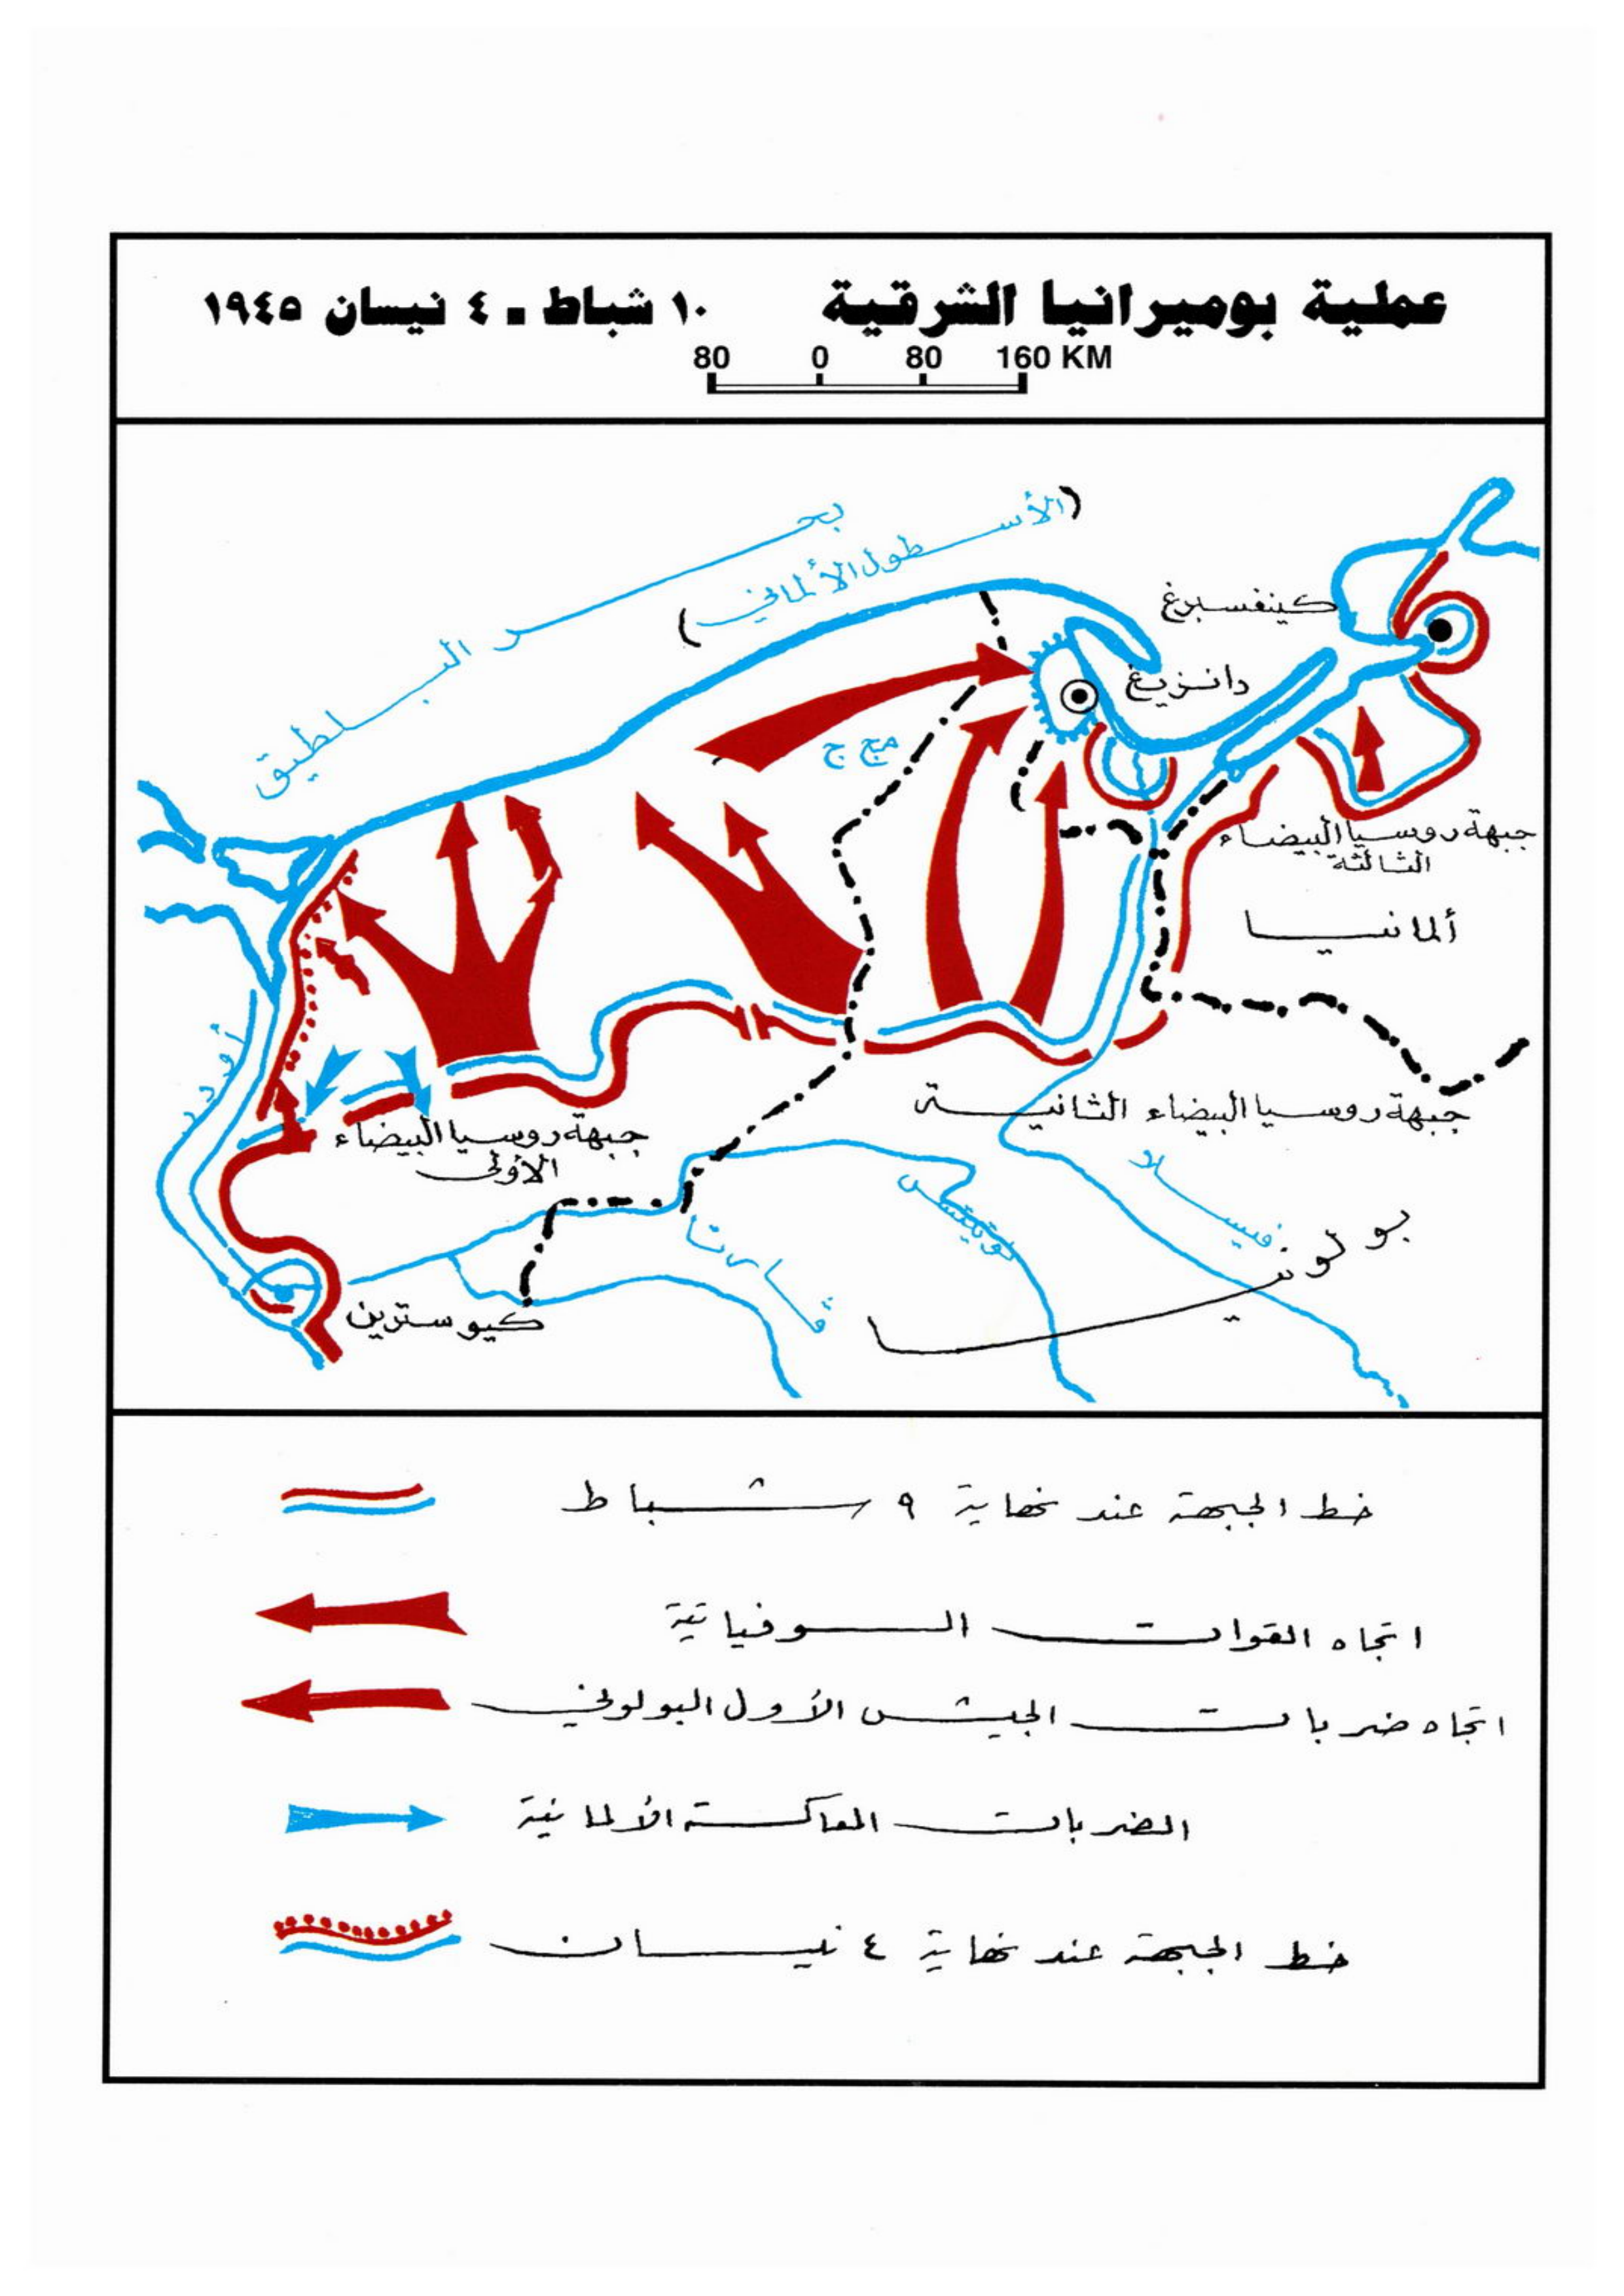 عملية بوميرانيا الشرقية ١٠ شباط ـ ٤ نيسان ١٩٤٥
80 0 80 160 KM
بحر البلطيق
(الأسطول الألماني)
كينغسبرغ
دانزيغ
مج ج
جبهة روسيا البيضاء
الثالثة
ألمانيا
أودر
جبهة روسيا البيضاء الثانية
جبهة روسيا البيضاء
الأولى
فيسلا
نوتيتس
فارتا
بولونيا
كيوسترين
خط الجبهة عند نهاية ٩ شباط
اتجاه القوات السوفياتية
اتجاه ضربات الجيش الأول البولوني
الضربات المعاكسة الألمانية
خط الجبهة عند نهاية ٤ نيسان